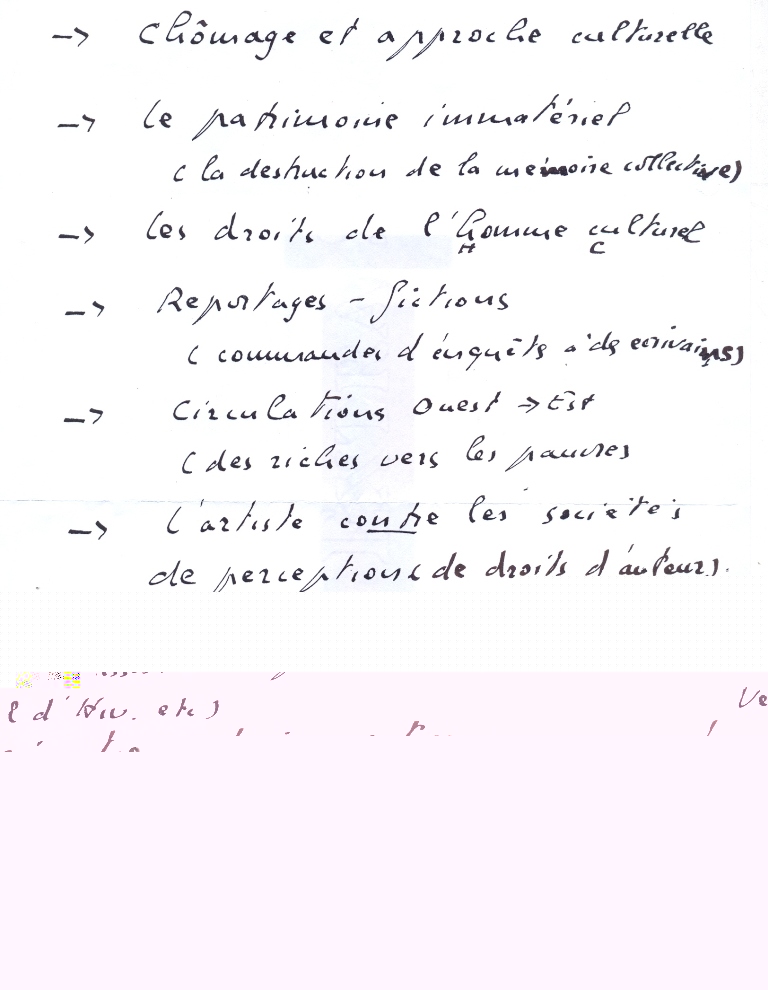 -> Chômage et approche culturelle
-> le patrimoine immatériel
( la destruction de la mémoire collective)
-> les droits de l'homme culturel
H C
-> Reportages - fictions
( commandes d'enquêts à des ecrivains)
-> Circulations Ouest -> Est
( des riches vers les pauvres
-> l'artiste contre les sociétés
de perceptions (de droits d'auteur).
d' etc)
Ve